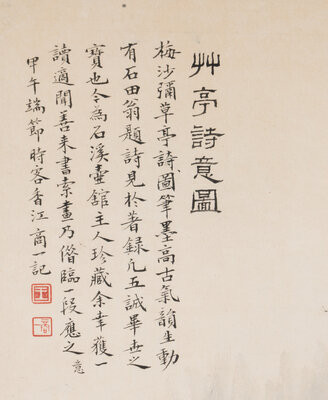 艸亭詩意圖
梅沙彌草亭詩圖筆墨高古氣韻生動
有石田翁題詩見於著錄凡五誠畢世之
寶也今為石溪壺館主人珍藏余幸獲一
讀適聞善来書索畫乃僭臨一段應之意
甲午端節時客香江商一記